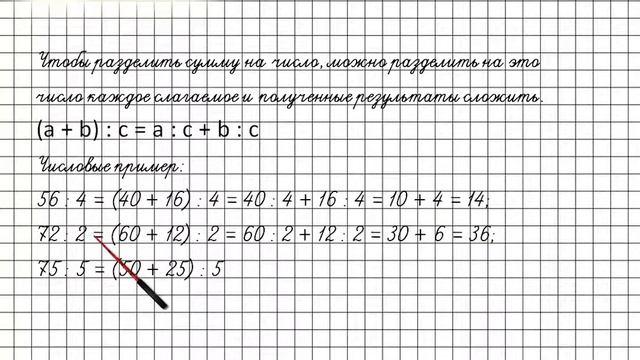 Чтобы разделить сумму на число, можно разделить на это
число каждое слагаемое и полученные результаты сложить.
(a + b) : c = a : c + b : c
Числовые пример:
56 : 4 = (40 + 16) : 4 = 40 : 4 + 16 : 4 = 10 + 4 = 14;
72 : 2 = (60 + 12) : 2 = 60 : 2 + 12 : 2 = 30 + 6 = 36;
75 : 5 = (50 + 25) : 5